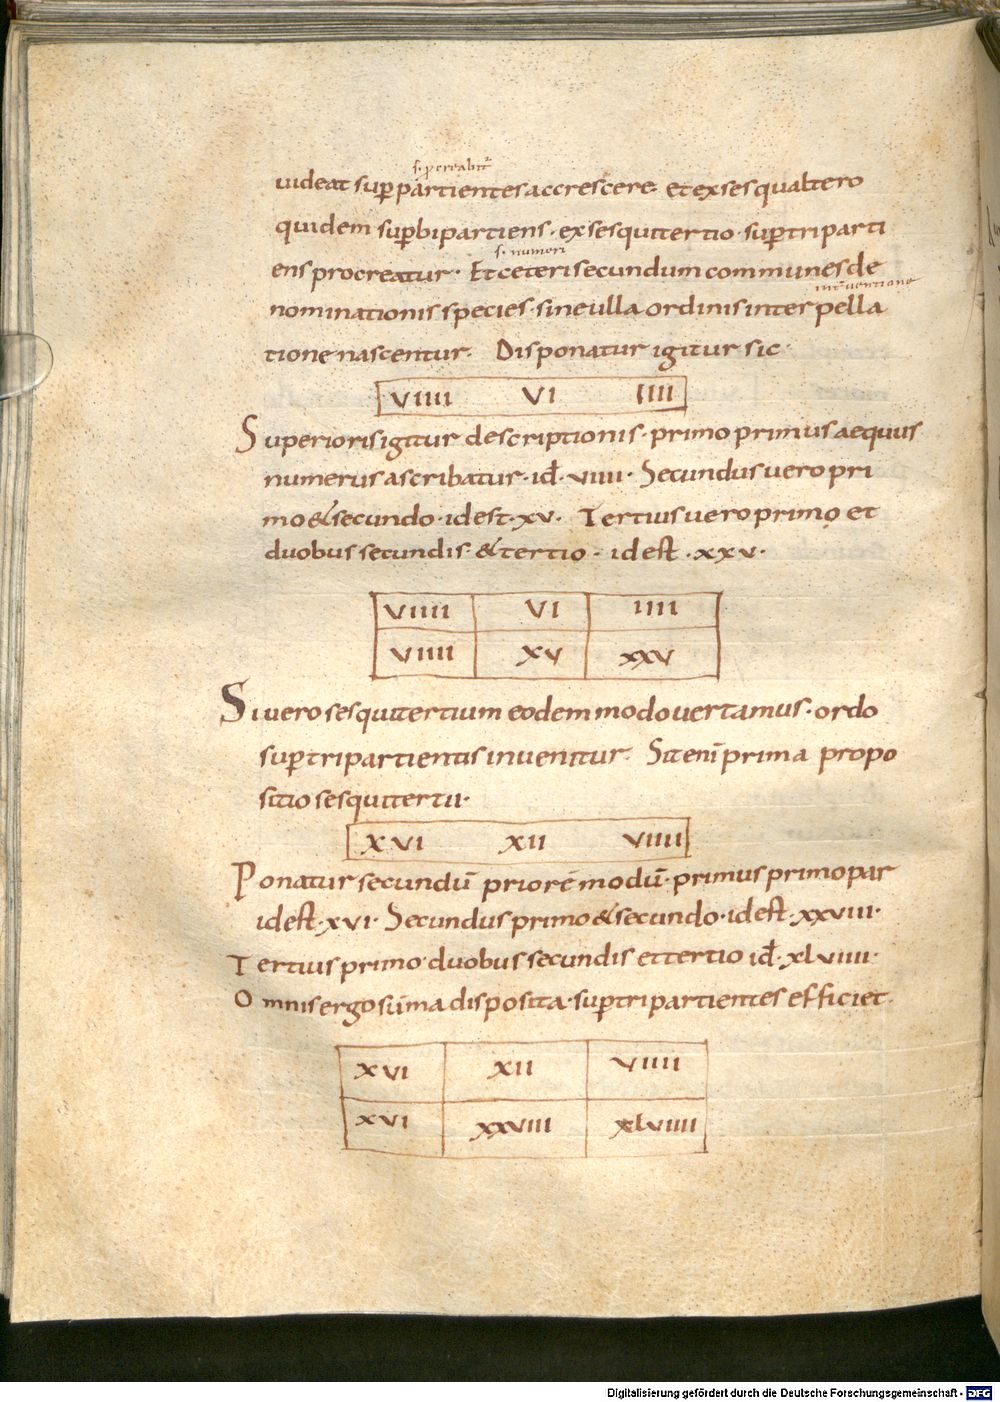 s. procreabit᷒
uideat suppartientes accrescere· et ex sesqualtero
quidem supbipartiens· ex sesquitertio· suptriparti
s. numeri
ens procreatur· Et ceteri secundum communes de
int̄uentione
nominationis species· sine ulla ordinis interpella
tione nascentur· Disponatur igitur sic·
VIIII VI IIII
Superioris igitur descriptionis· primo primus aequus
numerus ascribatur· id̄· VIIII· Secundus uero pri
mo & secundo· idest· xv· Tertius uero primo et
duobus secundis· & tertio· idest· xxv·
VIIII VI IIII
VIIII XV XXV
Si uero sesquitertium eodem modo uertamus· ordo
suptripartientis inuenitur· Sit enī prima propo
sitio sesquitertii·
XVI XII VIIII
Ponatur secundū priorē modū· primus primo par
idest· xvi· Secundus primo & secundo· idest· xxviii·
Tertius primo duobus secundis et tertio id̄· xlviiii·
Omnis ergo sūma disposita· suptripartientes efficiet·
XVI XII VIIII
XVI XXVIII XLVIIII
Digitalisierung gefördert durch die Deutsche Forschungsgemeinschaft - DFG